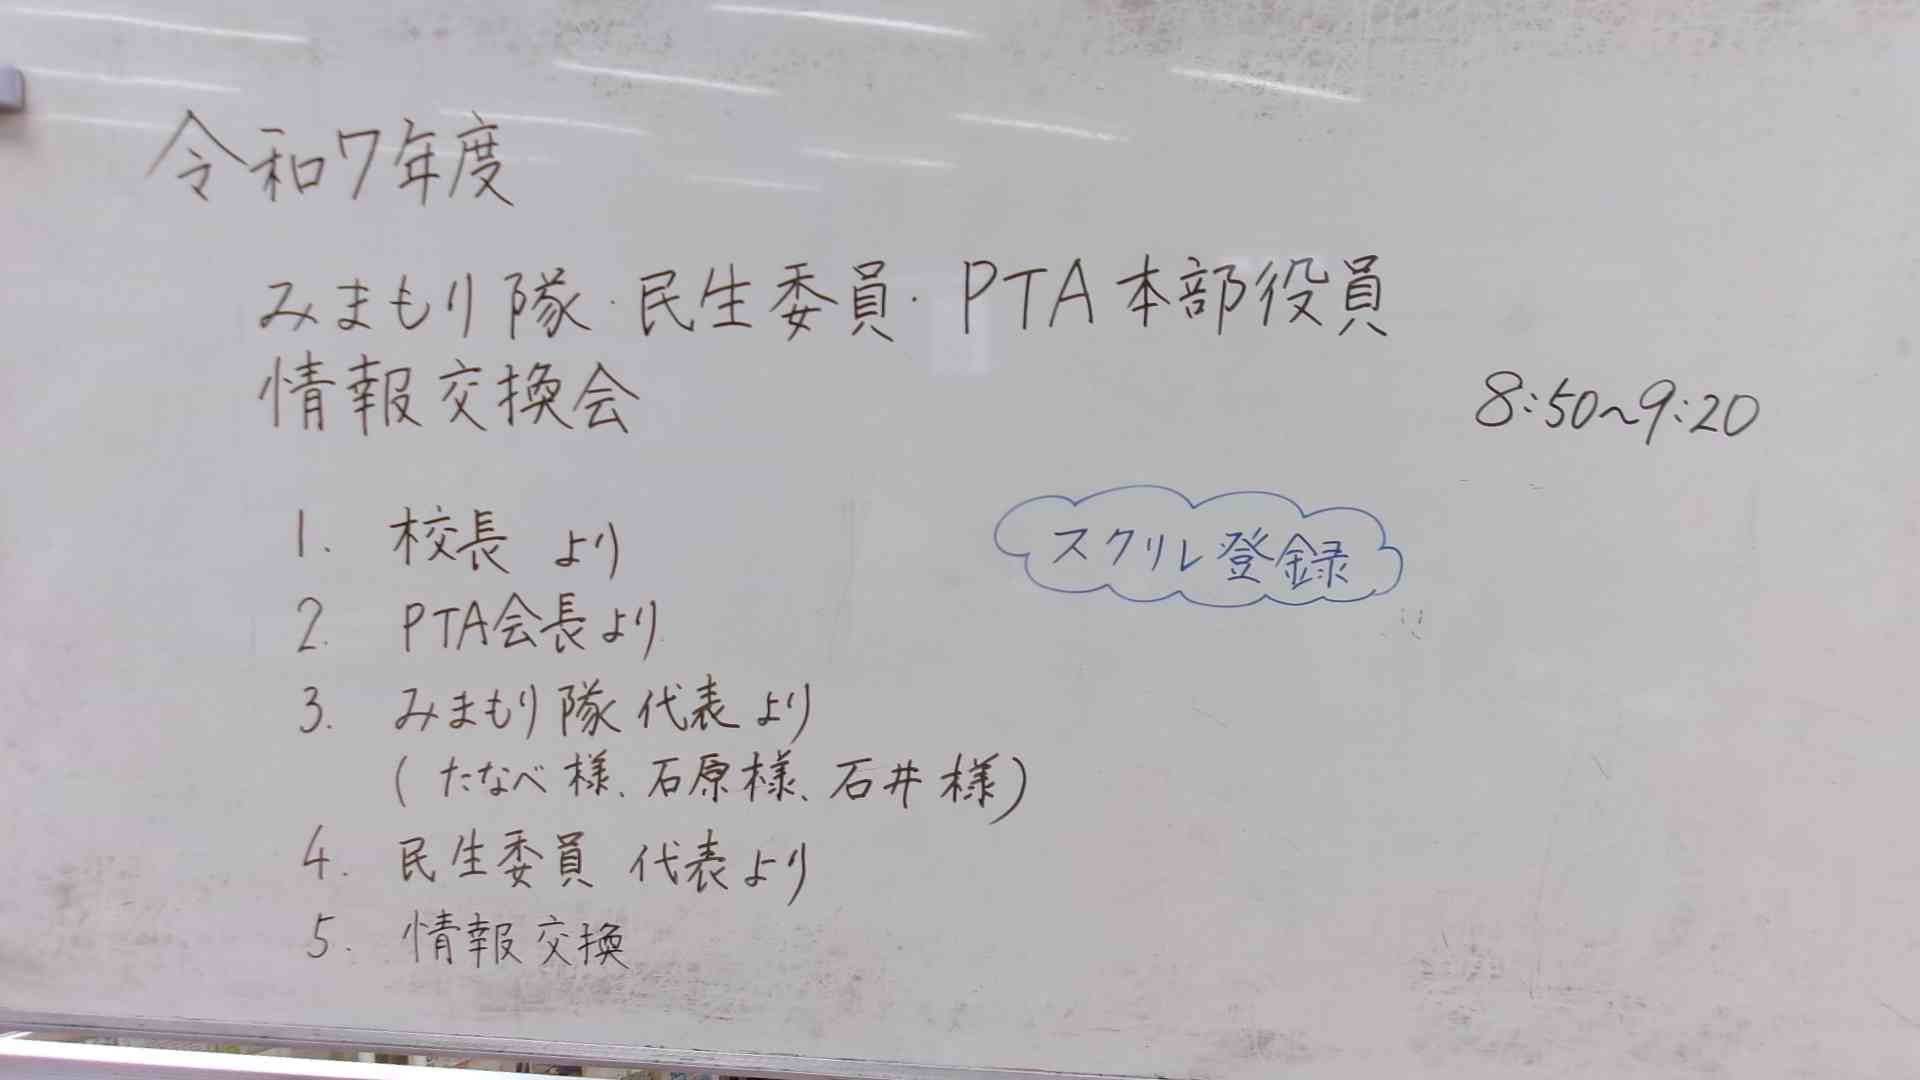 令和7年度
みまもり隊・民生委員・PTA本部役員
情報交換会
8:50～9:20
スクリレ登録
1. 校長 より
2. PTA会長より
3. みまもり隊 代表より
(たなべ様、石原様、石井様)
4. 民生委員 代表より
5. 情報交換